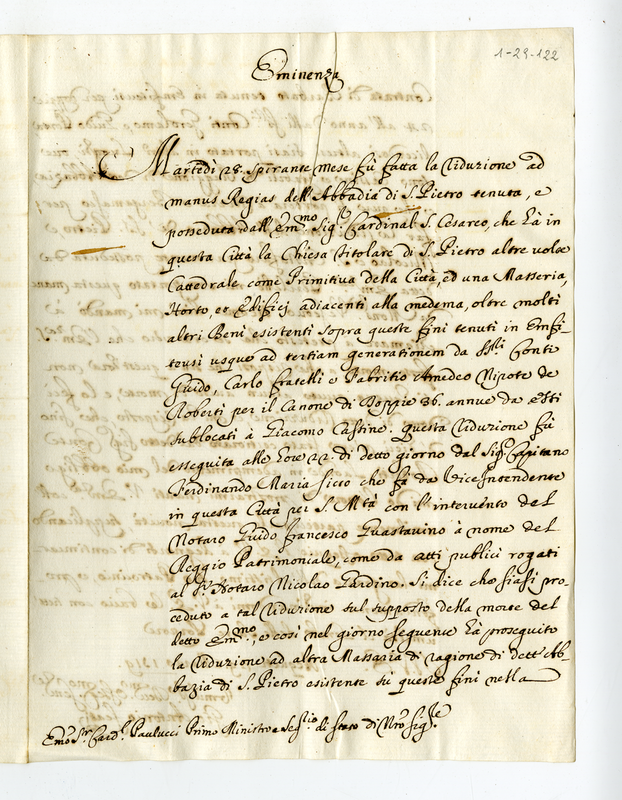 1-23-122
Eminenza
Martedì 28. Spirante mese fù fatta la riduzione ad
manus Regias dell'Abbadia di S. Pietro tenuta, e
posseduta dall'Em.mo Sig.r Cardinal S. Cesareo, che hà in
questa Città la Chiesa titolare di S. Pietro altre volte
Cattedrale come Primitiva della Città, ed una Masseria,
Horto, et Edificij adiacenti alla medema, oltre molti
altri Beni esistenti sopra queste fini tenuti in Emfi-
teusi usque ad tertiam generationem da SS.ri Conti
Guido, Carlo fratelli e Fabritio Amedeo Nipote de
Roberti per il Canone di Doppie 36. annue da essi
sublocati à Giacomo Castine. questa riduzione fù
esseguita alle hore 22. di detto giorno dal Sig.r Capitano
Ferdinando Maria Sicco che fà da Vice Intendente
in questa Città per S. M.tà con l'intervento del
Notaro Guido Francesco Guastavino à nome del
Reggio Patrimoniale, come da atti publici rogati
al S.r Notaro Nicolao Gardino. Si dice che siasi pro
ceduto a tal riduzione sul supposto della morte del
detto Em.mo, e così nel giorno seguente hà proseguito
la riduzione ad altra Massaria di ragione di dett'Ab-
bazia di S. Pietro esistente sù queste fini nella
Em.o S.r Card.l Paulucci Primo Ministro e Seg.rio di stato di N.ro Sig.re